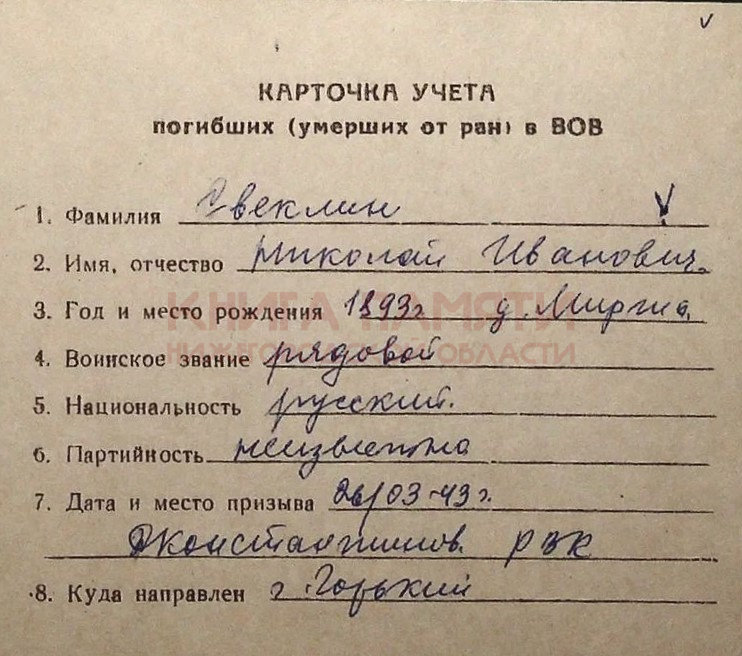 КАРТОЧКА УЧЕТА
погибших (умерших от ран) в ВОВ
1. Фамилия Свеклин
2. Имя, отчество Николай Иванович.
3. Год и место рождения 1893г. д.
КНИГА ПАМЯТИ
НИЖЕГОРОДСКОЙ ОБЛАСТИ
4. Воинское звание рядовой
5. Национальность русский.
6. Партийность неизвестна
7. Дата и место призыва 26/03-43 г.
Дконстантинов. РВК
8. Куда направлен г. Горький